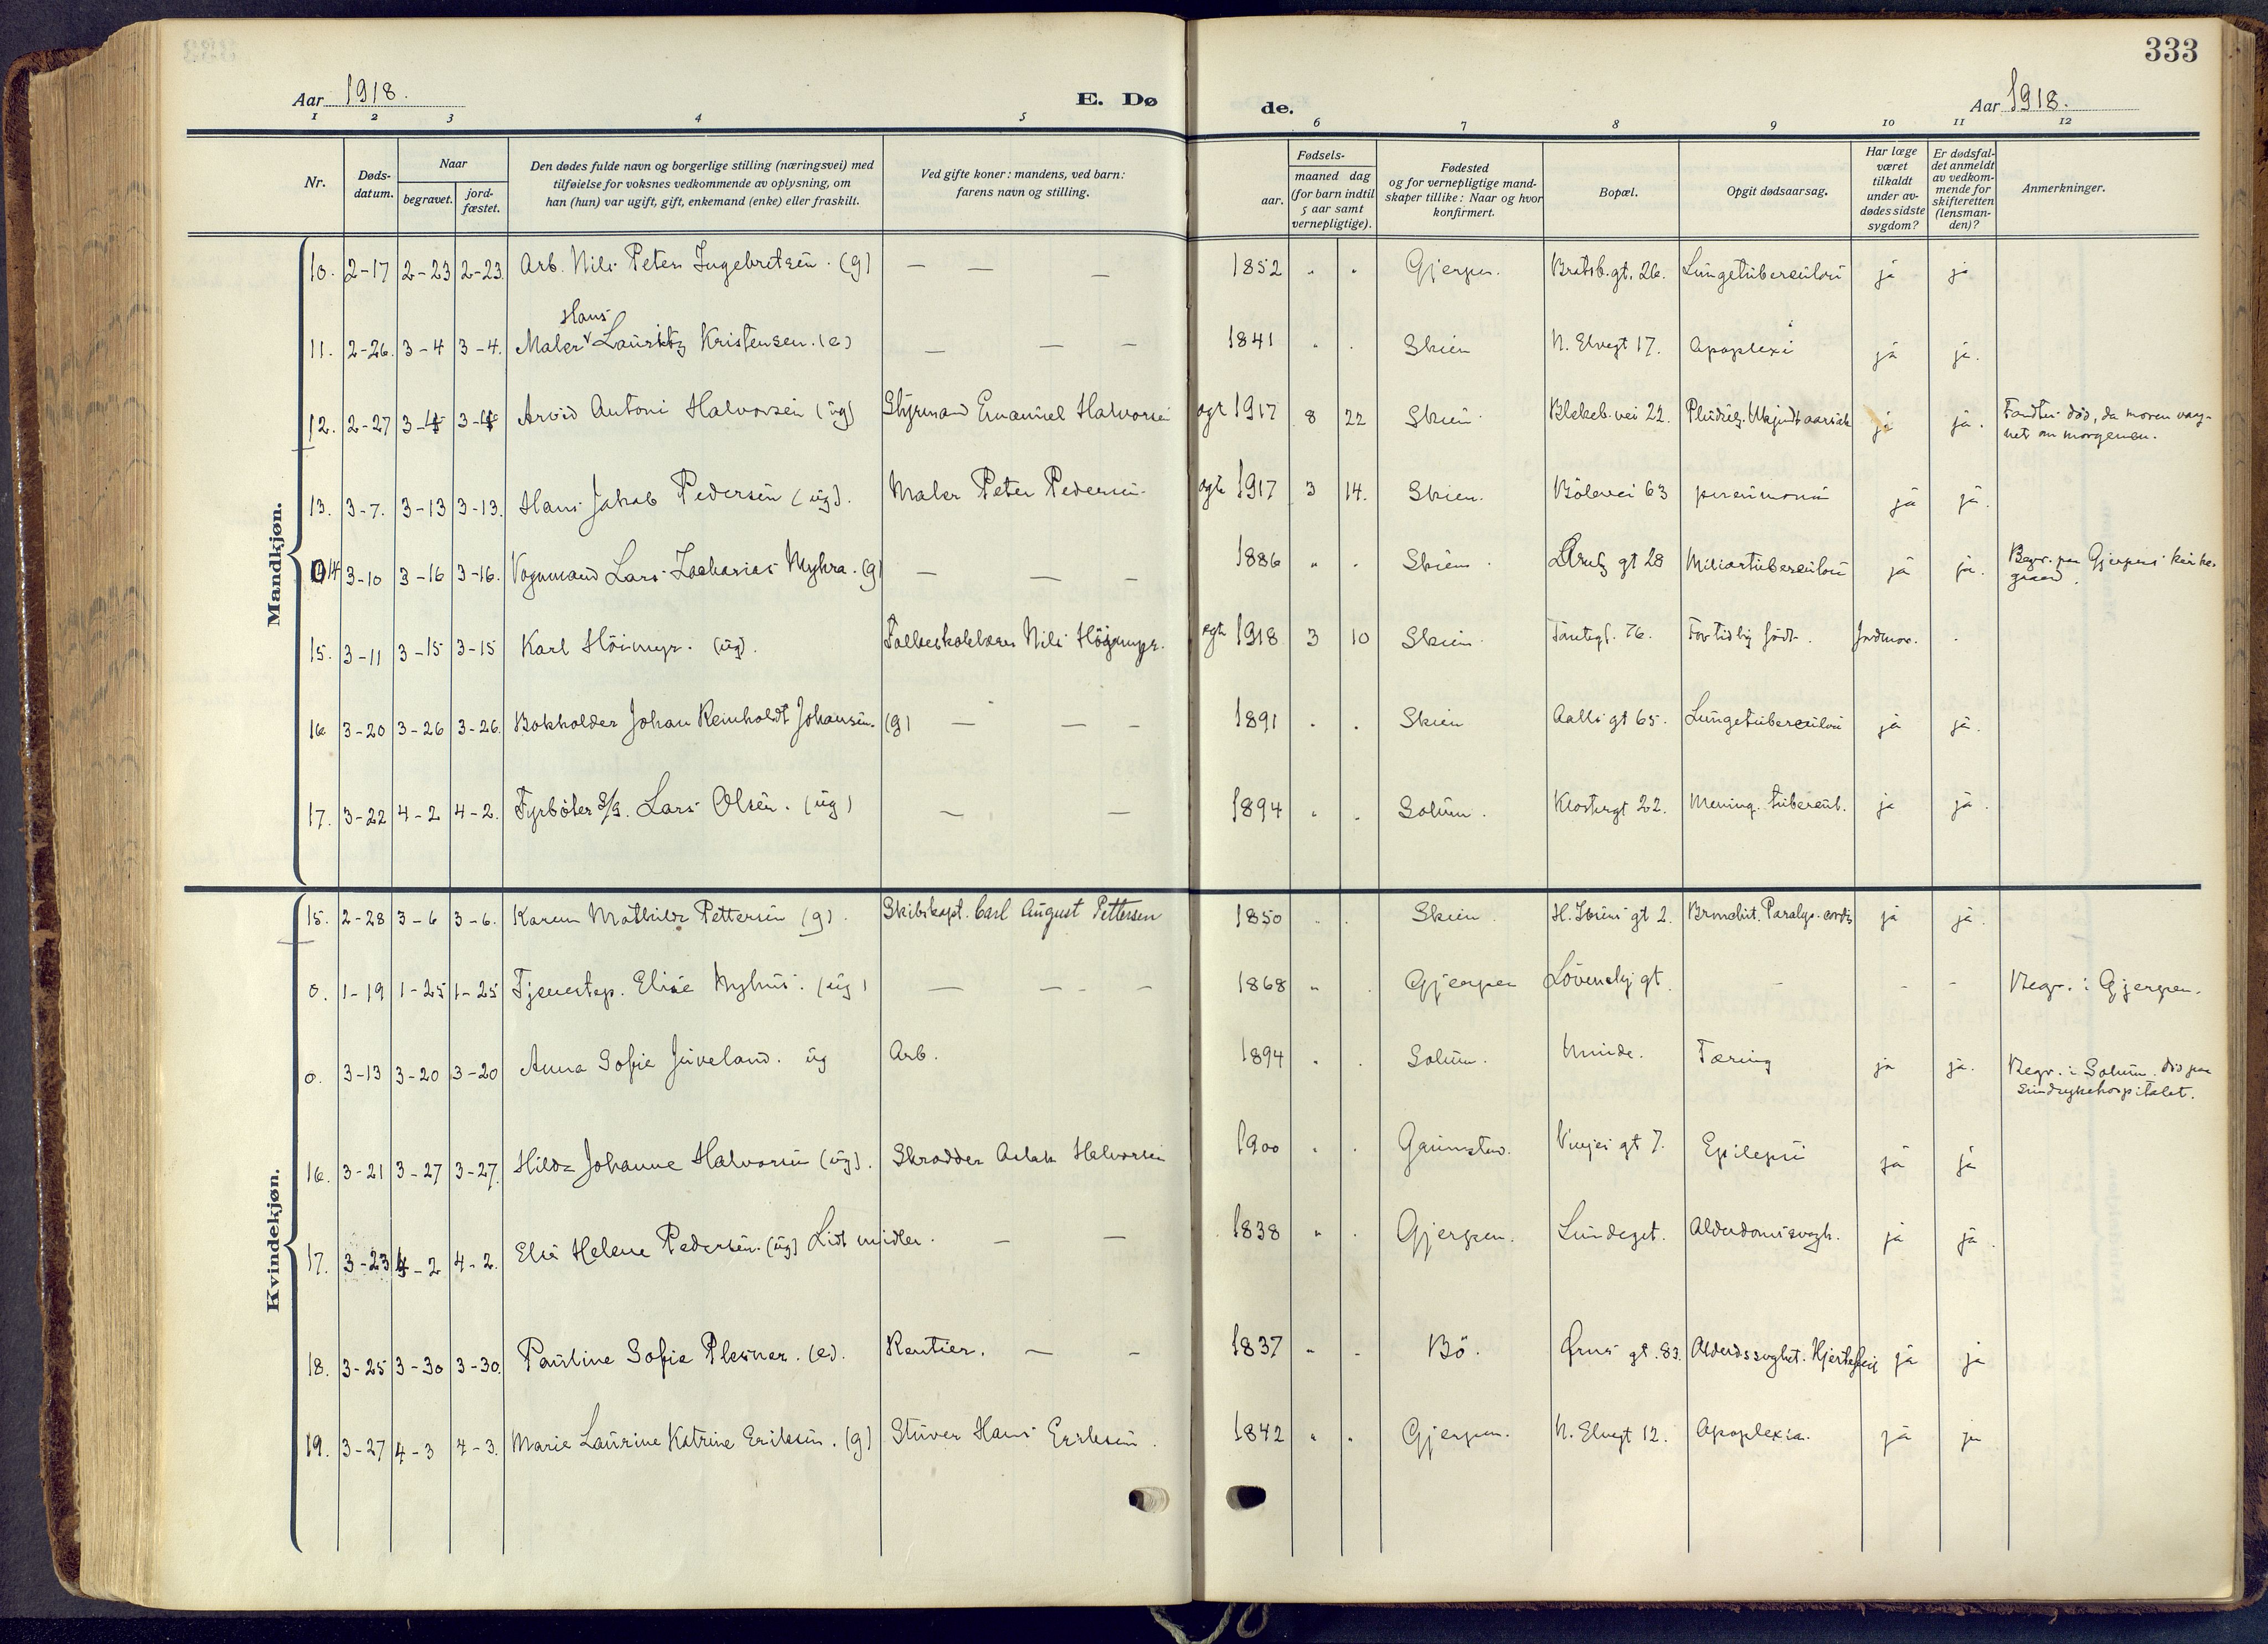 333
Aar 1918. E. Dø de. Aar 1918.
1 2 3 4 5 6 7 8 9 10 11 12
Nr.
Døds-
datum.
Naar
begravet.
jord-
fæstet.
Den dødes fulde navn og borgerlige stilling (næringsvei) med
tilføielse for voksnes vedkommende av oplysning, om
han (hun) var ugift, gift, enkemand (enke) eller fraskilt.
Ved gifte koner: mandens, ved barn:
farens navn og stilling.
Fødsels-
aar.
maaned dag
(for barn indtil
5 aar samt
vernepligtige).
Fødested
og for vernepligtige mand-
skaper tillike: Naar og hvor
konfirmert.
Bopæl.
Opgit dødsaarsag.
Har læge
været
tilkaldt
under av-
dødes sidste
sygdom?
Er dødsfal-
det anmeldt
av vedkom-
mende for
skifteretten
(lensman-
den)?
Anmerkninger.
Mandkjøn.
10. 2-17 2-23 2-23. Arb. Nils Peter Ingebretsen. (g) — — — 1852 " " Gjerpen. Bratsb.gt. 26. Lungetuberculosi ja ja
Hans
11. 2-26. 3-4 3-4. Maler Lauritz Kristensen. (e) — — — 1841 " . Skien N. Elvegt 17. Apoplexi ja ja.
12. 2-27 3-4 3-4 Arvid Antoni Halvorsen (ug) Styrmand Emanuel Halvorsen egt 1917 8 22 Skien Blekeb. vei 22. Ukjendt aarsak ja ja. Fandtes død, da moren vaag-
net om morgenen.
13. 3-7. 3-13 3-13. Hans Jakob Pedersen (ug). Maler Peter Pedersen. egte 1917 3 14. Skien. Bölevei 63 pneumoni ja ja.
14 3-10 3-16 3-16. Vognmand Lars Zacharias Myhra. (g) — — — 1886 " . Skien gt 28 Miliartuberculosi ja ja. Begr. paa Gjerpens kirke-
gaard.
15. 3-11 3-15 3-15 Karl Höimyr. (ug). Folkeskolelærer Nils Höimyr. egte 1918 3 10 Skien 76. For tidlig födt. Jordmor. .
16 3-20 3-26 3-26. Bokholder Johan Reinholdt Johansen. (g) — — — 1891 . . Skien Aalls gt 65. Lungetuberculosi ja ja.
17. 3-22 4-2 4-2. Fyrböter S/S. Lars Olsen. (ug) — — 1894 " . Solum. Klostergt 22. Mening. tubercul. ja ja.
Kvindekjøn.
15. 2-28 3-6 3-6. Karen Mathilde Pettersen (g). Skibskapt. Carl August Pettersen 1850 . . Skien. H. Ibsens gt 2. Bronchit. Paralys. cordis ja ja.
0. 1-19 1-25 1-25 Tjenestep. Elise Nyhus. (ug) — — — 1868 " . Gjerpen Lövenskj gt. - - - Begr. i Gjerpen.
0. 3-13 3-20 3-20 Anna Sofie Juveland. ug Arb. 1894 . . Solum. Minde. Tæring ja ja. Begr. i Solum. död paa
Sindsykehospitalet.
16. 3-21 3-27 3-27. Hilda Johanne Halvorsen (ug). Skrædder Aslak Halvorsen 1900 . . Vinjes gt 7. Epilepsi ja ja
17. 3-23 4-2 4-2. Elise Helene Pedersen. (ug) Lidt midler. — — 1838 " . Gjerpen. Lundegt. Alderdomssvagh. ja ja.
18. 3-25 3-30 3-30. Pauline Sofie Plesner. (e). Rentier. — - 1837 " - Bö. gt. 83. Alderdssvaghet. Hjertefeil ja ja
19. 3-27 4-3 4-3. Marie Laurine Katrine Eriksen. (g) Stuver Hans Eriksen. 1842 " " Gjerpen. N. Elvegt 12. Apoplexia. ja ja